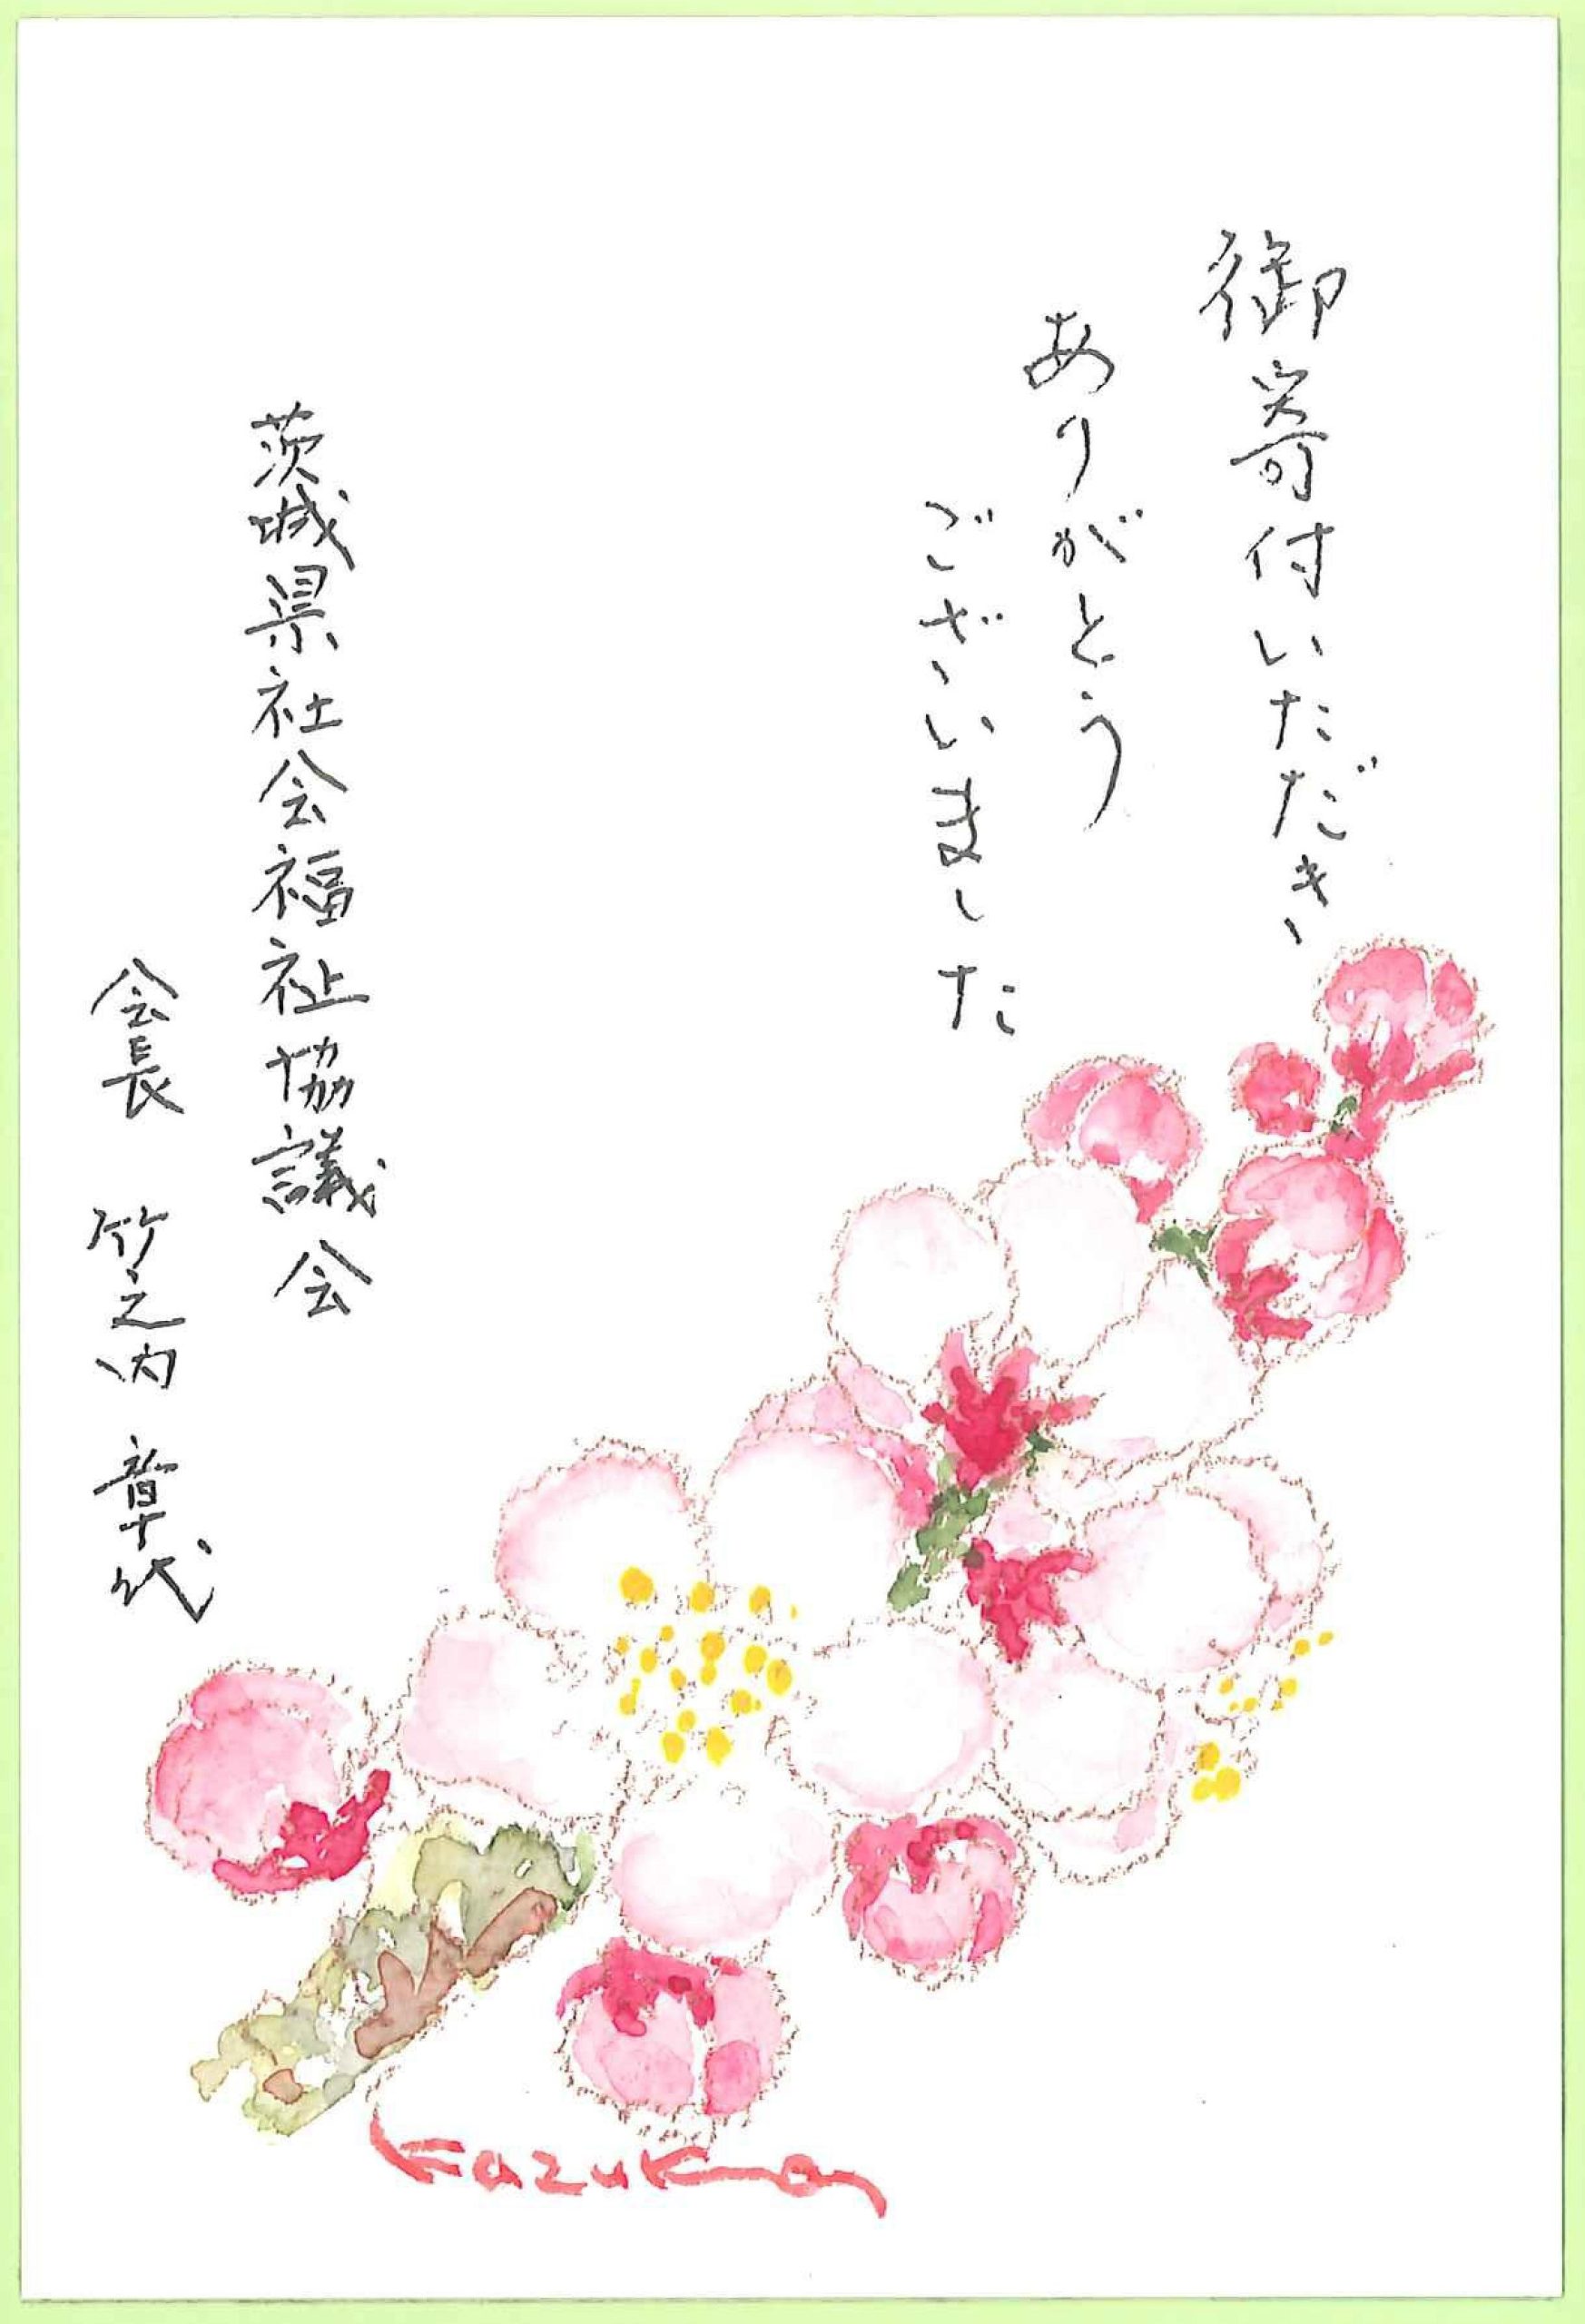 御寄付いただき
ありがとう
ございました
茨城県社会福祉協議会
会長 竹之内 章代
Kazuko